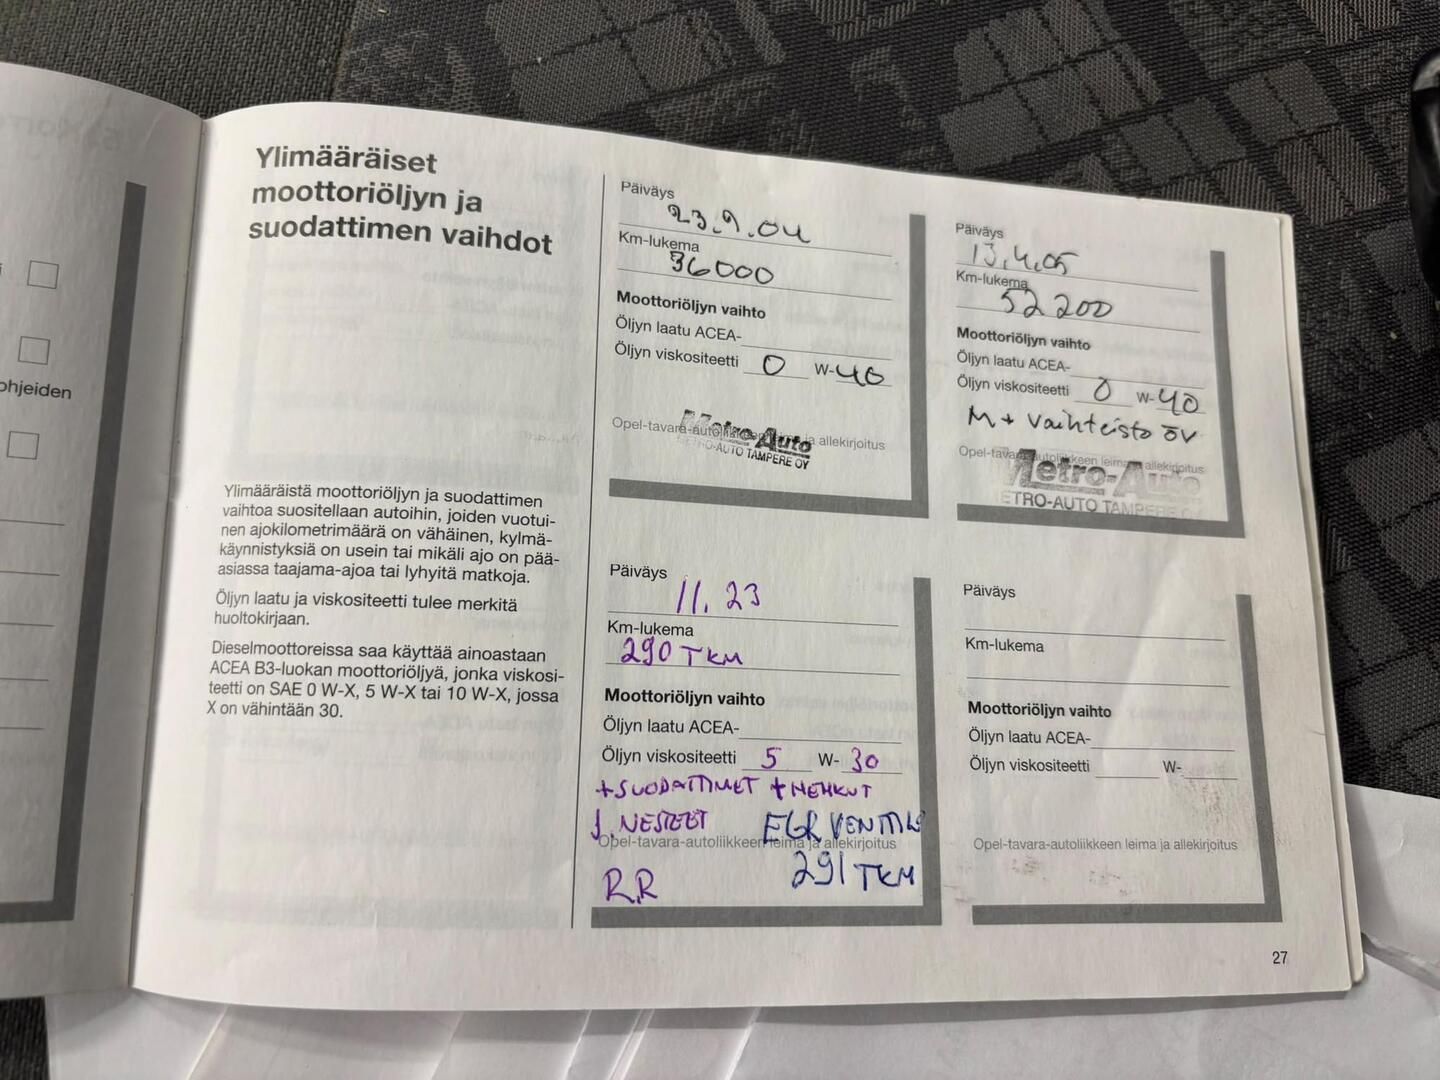 Ylimääräiset
moottoriöljyn ja
suodattimen vaihdot
Ylimääräistä moottoriöljyn ja suodattimen
vaihtoa suositellaan autoihin, joiden vuotui-
nen ajokilometrimäärä on vähäinen, kylmä-
käynnistyksiä on usein tai mikäli ajo on pää-
asiassa taajama-ajoa tai lyhyitä matkoja.
Öljyn laatu ja viskositeetti tulee merkitä
huoltokirjaan.
Dieselmoottoreissa saa käyttää ainoastaan
ACEA B3-luokan moottoriöljyä, jonka viskosi-
teetti on SAE 0 W-X, 5 W-X tai 10 W-X, jossa
X on vähintään 30.
ohjeiden
Päiväys
23.9.04
Km-lukema
36000
Moottoriöljyn vaihto
Öljyn laatu ACEA-
Öljyn viskositeetti 0 W-40
Opel-tavara-autoliikkeen leima ja allekirjoitus
Metro-Auto
METRO-AUTO TAMPERE OY
Päiväys
13.4.05
Km-lukema
52 200
Moottoriöljyn vaihto
Öljyn laatu ACEA-
Öljyn viskositeetti 0 W-40
M + vaihteisto öv
Opel-tavara-autoliikkeen leima ja allekirjoitus
Metro-Auto
METRO-AUTO TAMPERE OY
Päiväys
11. 23
Km-lukema
290 TKM
Moottoriöljyn vaihto
Öljyn laatu ACEA-
Öljyn viskositeetti 5 W-30
+SUODATTIMET + HEHKUT
J. NESTEET EGR VENTTIILI
Opel-tavara-autoliikkeen leima ja allekirjoitus
R.R 291 TKM
Päiväys
Km-lukema
Moottoriöljyn vaihto
Öljyn laatu ACEA-
Öljyn viskositeetti W-
Opel-tavara-autoliikkeen leima ja allekirjoitus
27